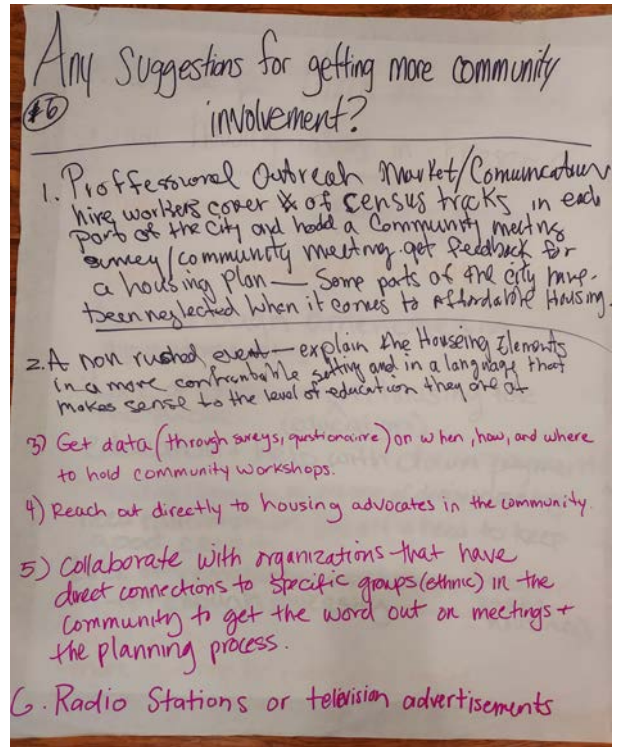 Any Suggestions for getting more community
#6 involvement?
1. Proffessional Outreah Market/Comuncatiun
hire workers cover # of census tracks in each
part of the city and hodd a Community meetng
survey/community meeting. get feedback for
a housing Plan — Some parts of the city have
been neglected when it comes to Affordable Housing.
2. A non rushed event — explain the Houseing Elements
in a more confrontable setting and in a language that
makes sense to the level of education they are at
3) Get data (through sureys, qustionairre) on when, how, and where
to hold community workshops.
4) Reach out directly to housing advocates in the community.
5) Collaborate with organizations that have
direct connections to specific groups (ethnic) in the
community to get the word out on meetings +
the planning process.
6. Radio Stations or television advertisements